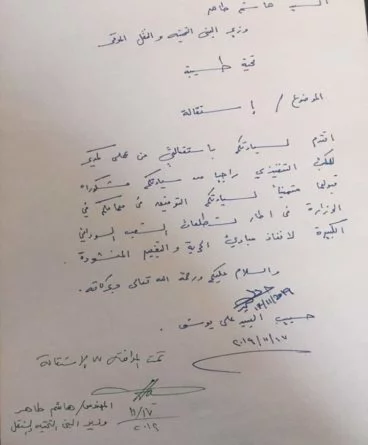 السيد هاشم طاهر
وزير البنى التحتية والنقل الموقر
تحية طيبة
الموضوع / إستقالة
اتقدم لسيادتكم باستقالتي من
التنفيذي راجيا من سيادتكم
قبولها متمنياً لسيادتكم التوفيق في مهامكم في
الوزارة في اطار تطلعات الشعب السوداني
الكبيرة لانفاذ مبادئ الحرية والتغيير المنشودة.
والسلام عليكم ورحمة الله تعالى وبركاته.
١٧/١١/٢٠١٩
حسيب السيد علي يوسف.
٢٠١٩/١١/١٧
تمت الموافقة الاستقالة
المهندس/هاشم طاهر
١١/١٧
وزير البنى التحتية والنقل
٢٠١٩